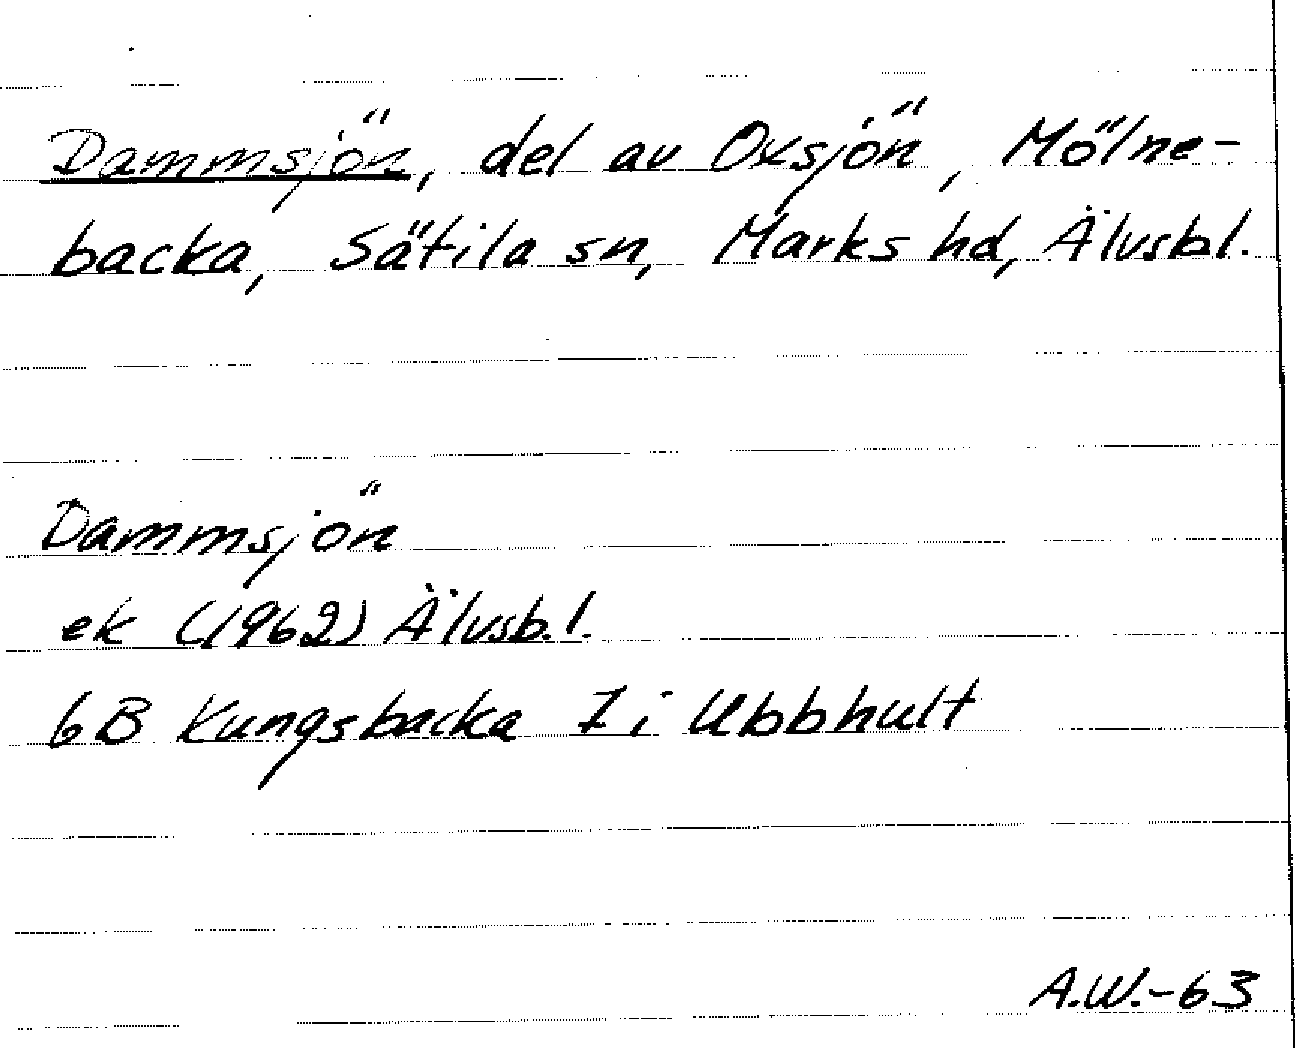 Dammsjön, del av Oxsjön, Mölne-
backa, Sätila sn, Marks hd, Älvsbl.
Dammsjön
ek (1962) Älvsb.l.
6B Kungsbacka 7 i Ubbhult
A.W.-63